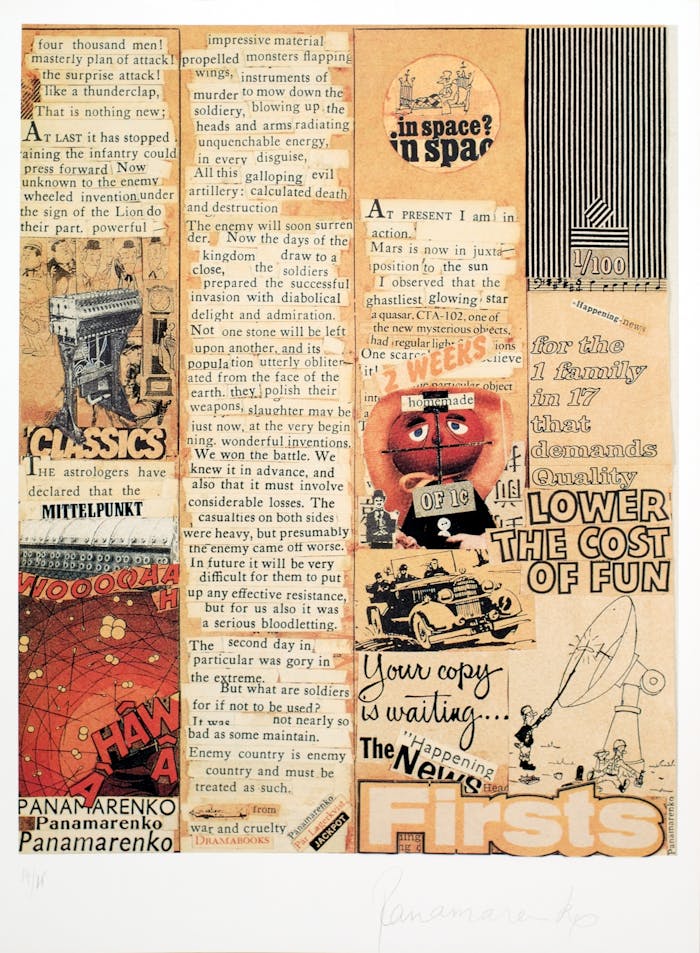 four thousand men!
masterly plan of attack!
the surprise attack!
like a thunderclap,
That is nothing new;
AT LAST it has stopped
raining the infantry could
press forward Now
unknown to the enemy
wheeled invention under
the sign of the Lion do
their part. powerful
CLASSICS
THE astrologers have
declared that the
MITTELPUNKT
PANAMARENKO
Panamarenko
Panamarenko
impressive material
propelled monsters flapping
wings, instruments of
murder to mow down the
soldiery, blowing up the
heads and arms radiating
unquenchable energy,
in every disguise,
All this galloping evil
artillery: calculated death
and destruction
The enemy will soon surren
der. Now the days of the
kingdom draw to a
close, the soldiers
prepared the successful
invasion with diabolical
delight and admiration.
Not one stone will be left
upon another, and its
population utterly obliter-
ated from the face of the
earth. they polish their
weapons, slaughter may be
just now, at the very begin
ning. wonderful inventions.
We won the battle. We
knew it in advance, and
also that it must involve
considerable losses. The
casualties on both sides
were heavy, but presumably
the enemy came off worse.
In future it will be very
difficult for them to put
up any effective resistance,
but for us also it was
a serious bloodletting.
The second day in
particular was gory in
the extreme.
But what are soldiers
for if not to be used?
It was not nearly so
bad as some maintain.
Enemy country is enemy
country and must be
treated as such.
from
war and cruelty
DRAMABOOKS
Panamarenko
Par Lagerkvist
JACKPOT
in space?
in spac
AT PRESENT I am in
action.
Mars is now in juxta-
position to the sun
I observed that the
ghastliest glowing star
a quasar, CTA-102, one of
the new mysterious objects,
had regular light
One
it!
2 WEEKS
particular object
homemade
OF 1¢
Your copy
is waiting...
The "Happening
News
Head
Firsts
1/100
-Happening-news
for the
1 family
in 17
that
demands
Quality
LOWER
THE COST
OF FUN
Panamarenko
Panamarenko